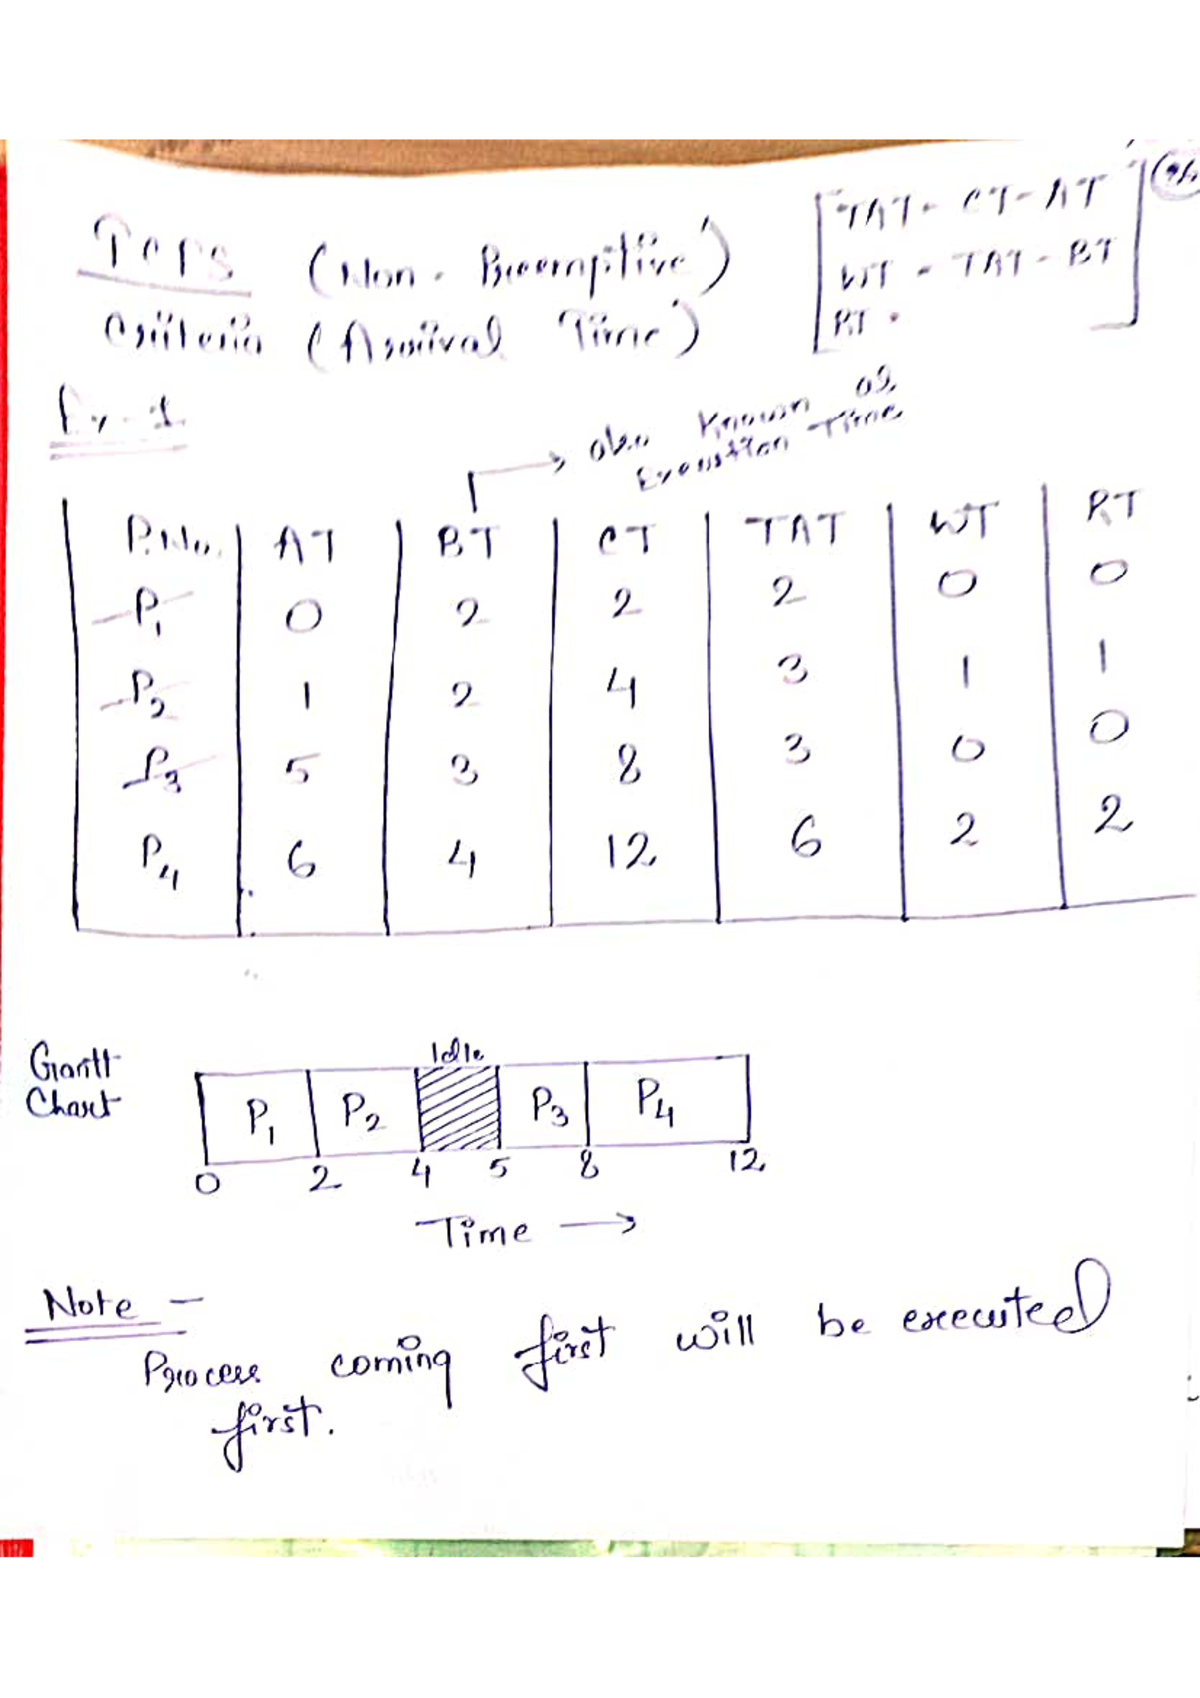 FCFS (Non - Preemptive)
Criteria (Arrival Time)
[TAT = CT - AT
WT = TAT - BT
RT = ]
Ex - 1
→ also known as
Execution Time
P.No. AT BT CT TAT WT RT
P1 0 2 2 2 0 0
P2 1 2 4 3 1 1
P3 5 3 8 3 0 0
P4 6 4 12 6 2 2
Gantt
Chart
Idle
P1 P2 P3 P4
0 2 4 5 8 12
Time →
Note -
Process coming first will be executed
first.